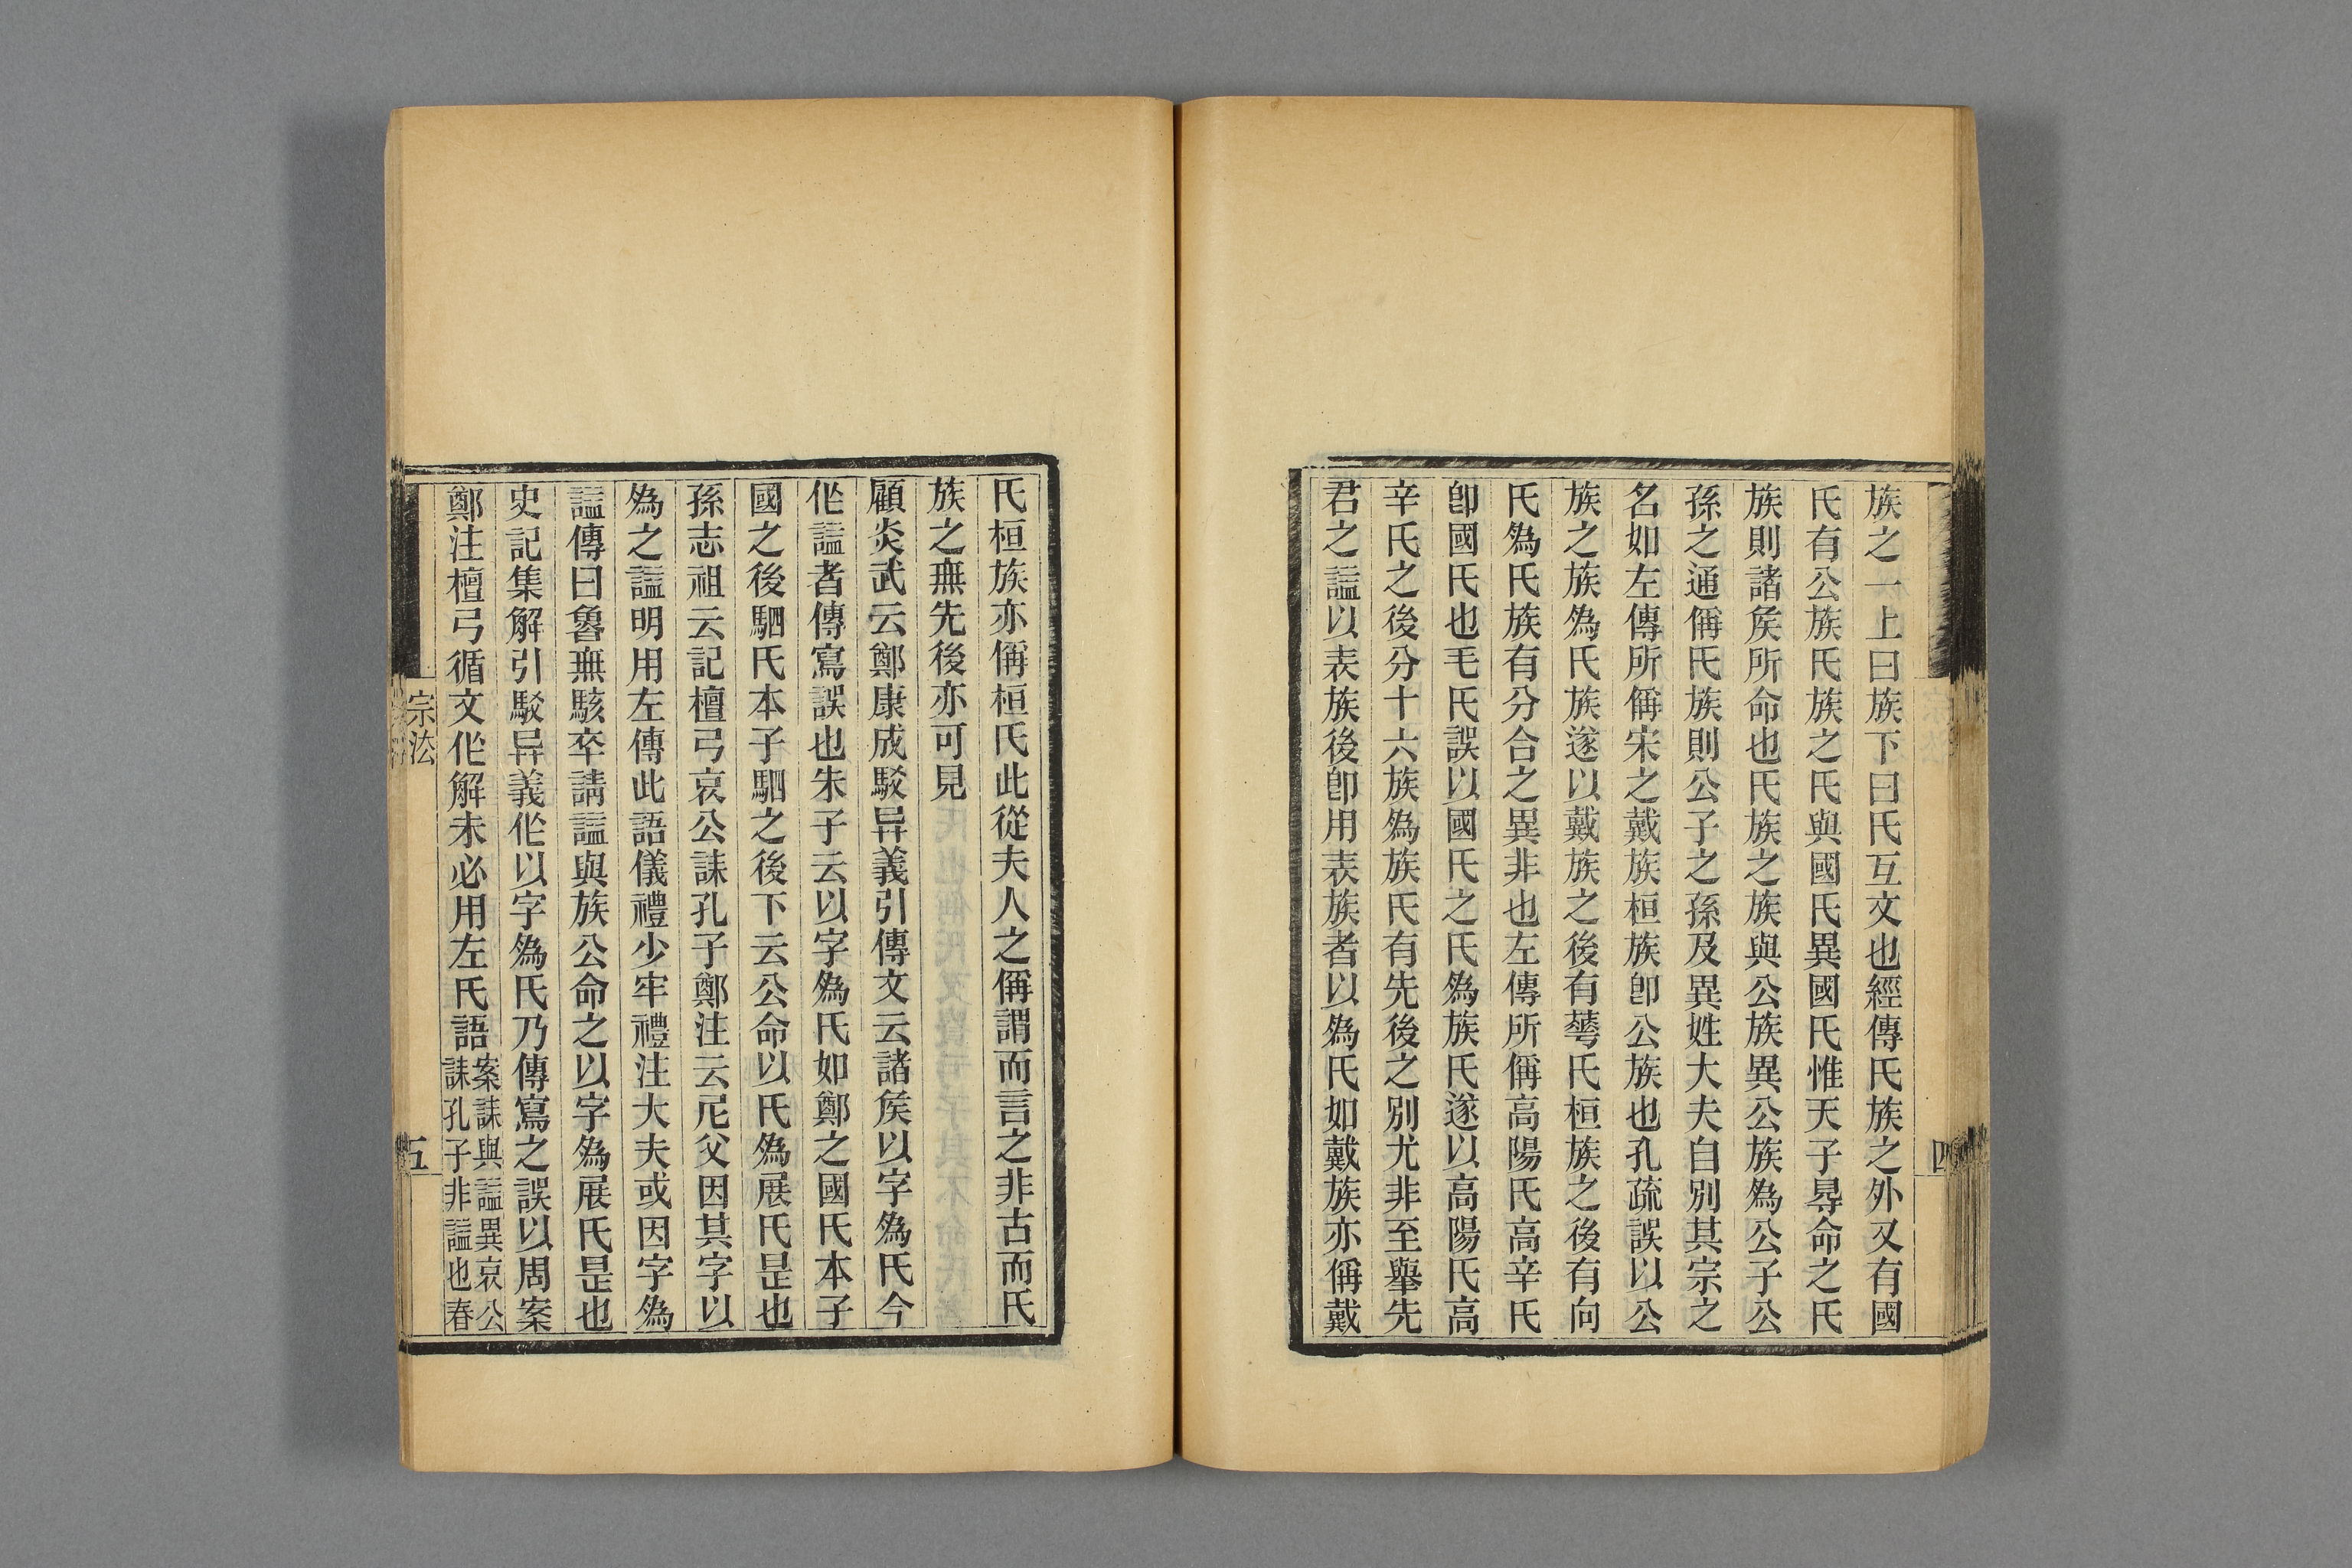 族之一上曰族下曰氏互文也經傳氏族之外又有國
氏有公族氏族之氏與國氏異國氏惟天子㝵命之氏
族則諸矦所命也氏族之族與公族異公族為公子公
孫之通偁氏族則公子之孫及異姓大夫自別其宗之
名如左傳所偁宋之戴族桓族卽公族也孔疏誤以公
族之族為氏族遂以戴族之後有華氏桓族之後有向
氏為氏族有分合之異非也左傳所偁高陽氏高辛氏
卽國氏也毛氏誤以國氏之氏為族氏遂以高陽氏高
辛氏之後分十六族為族氏有先後之別尤非至舉先
君之諡以表族後卽用表族者以為氏如戴族亦偁戴
四
氏桓族亦偁桓氏此從夫人之偁謂而言之非古而氏
族之無先後亦可見
顧炎武云鄭康成駁异義引傳文云諸矦以字為氏今
作諡者傳寫誤也朱子云以字為氏如鄭之國氏本子
國之後駟氏本子駟之後下云公命以氏為展氏是也
孫志祖云記檀弓哀公誄孔子鄭注云尼父因其字以
為之諡明用左傳此語儀禮少牢禮注大夫或因字為
諡傳曰魯無駭卒請諡與族公命之以字為展氏是也
史記集解引駁异義作以字為氏乃傳寫之誤以周案
鄭注檀弓循文作解未必用左氏語案誄與諡異哀公
誄孔子非諡也春
宗法
五